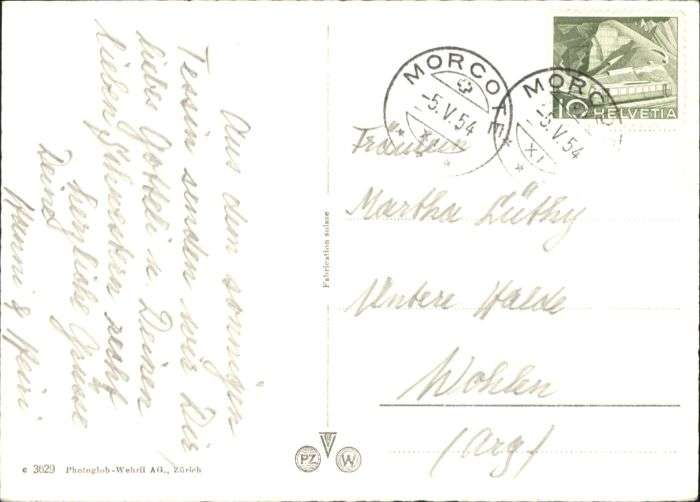 Aus dem sonnigen
Tessin senden wir Dir
liebs Gotteli u. Deinen
lieben Schwestern recht
herzliche Grüsse
Deine
Hanni & Heiri
Fabrication suisse
c 3629 Photoglob-Wehrli AG., Zürich
PZ W
MORCOTE
-5.V.54
XI
MORCO
-5.V.54
XI
10 HELVETIA
Fräulein
Martha Lüthy
Untere Halde
Wohlen
(Arg)